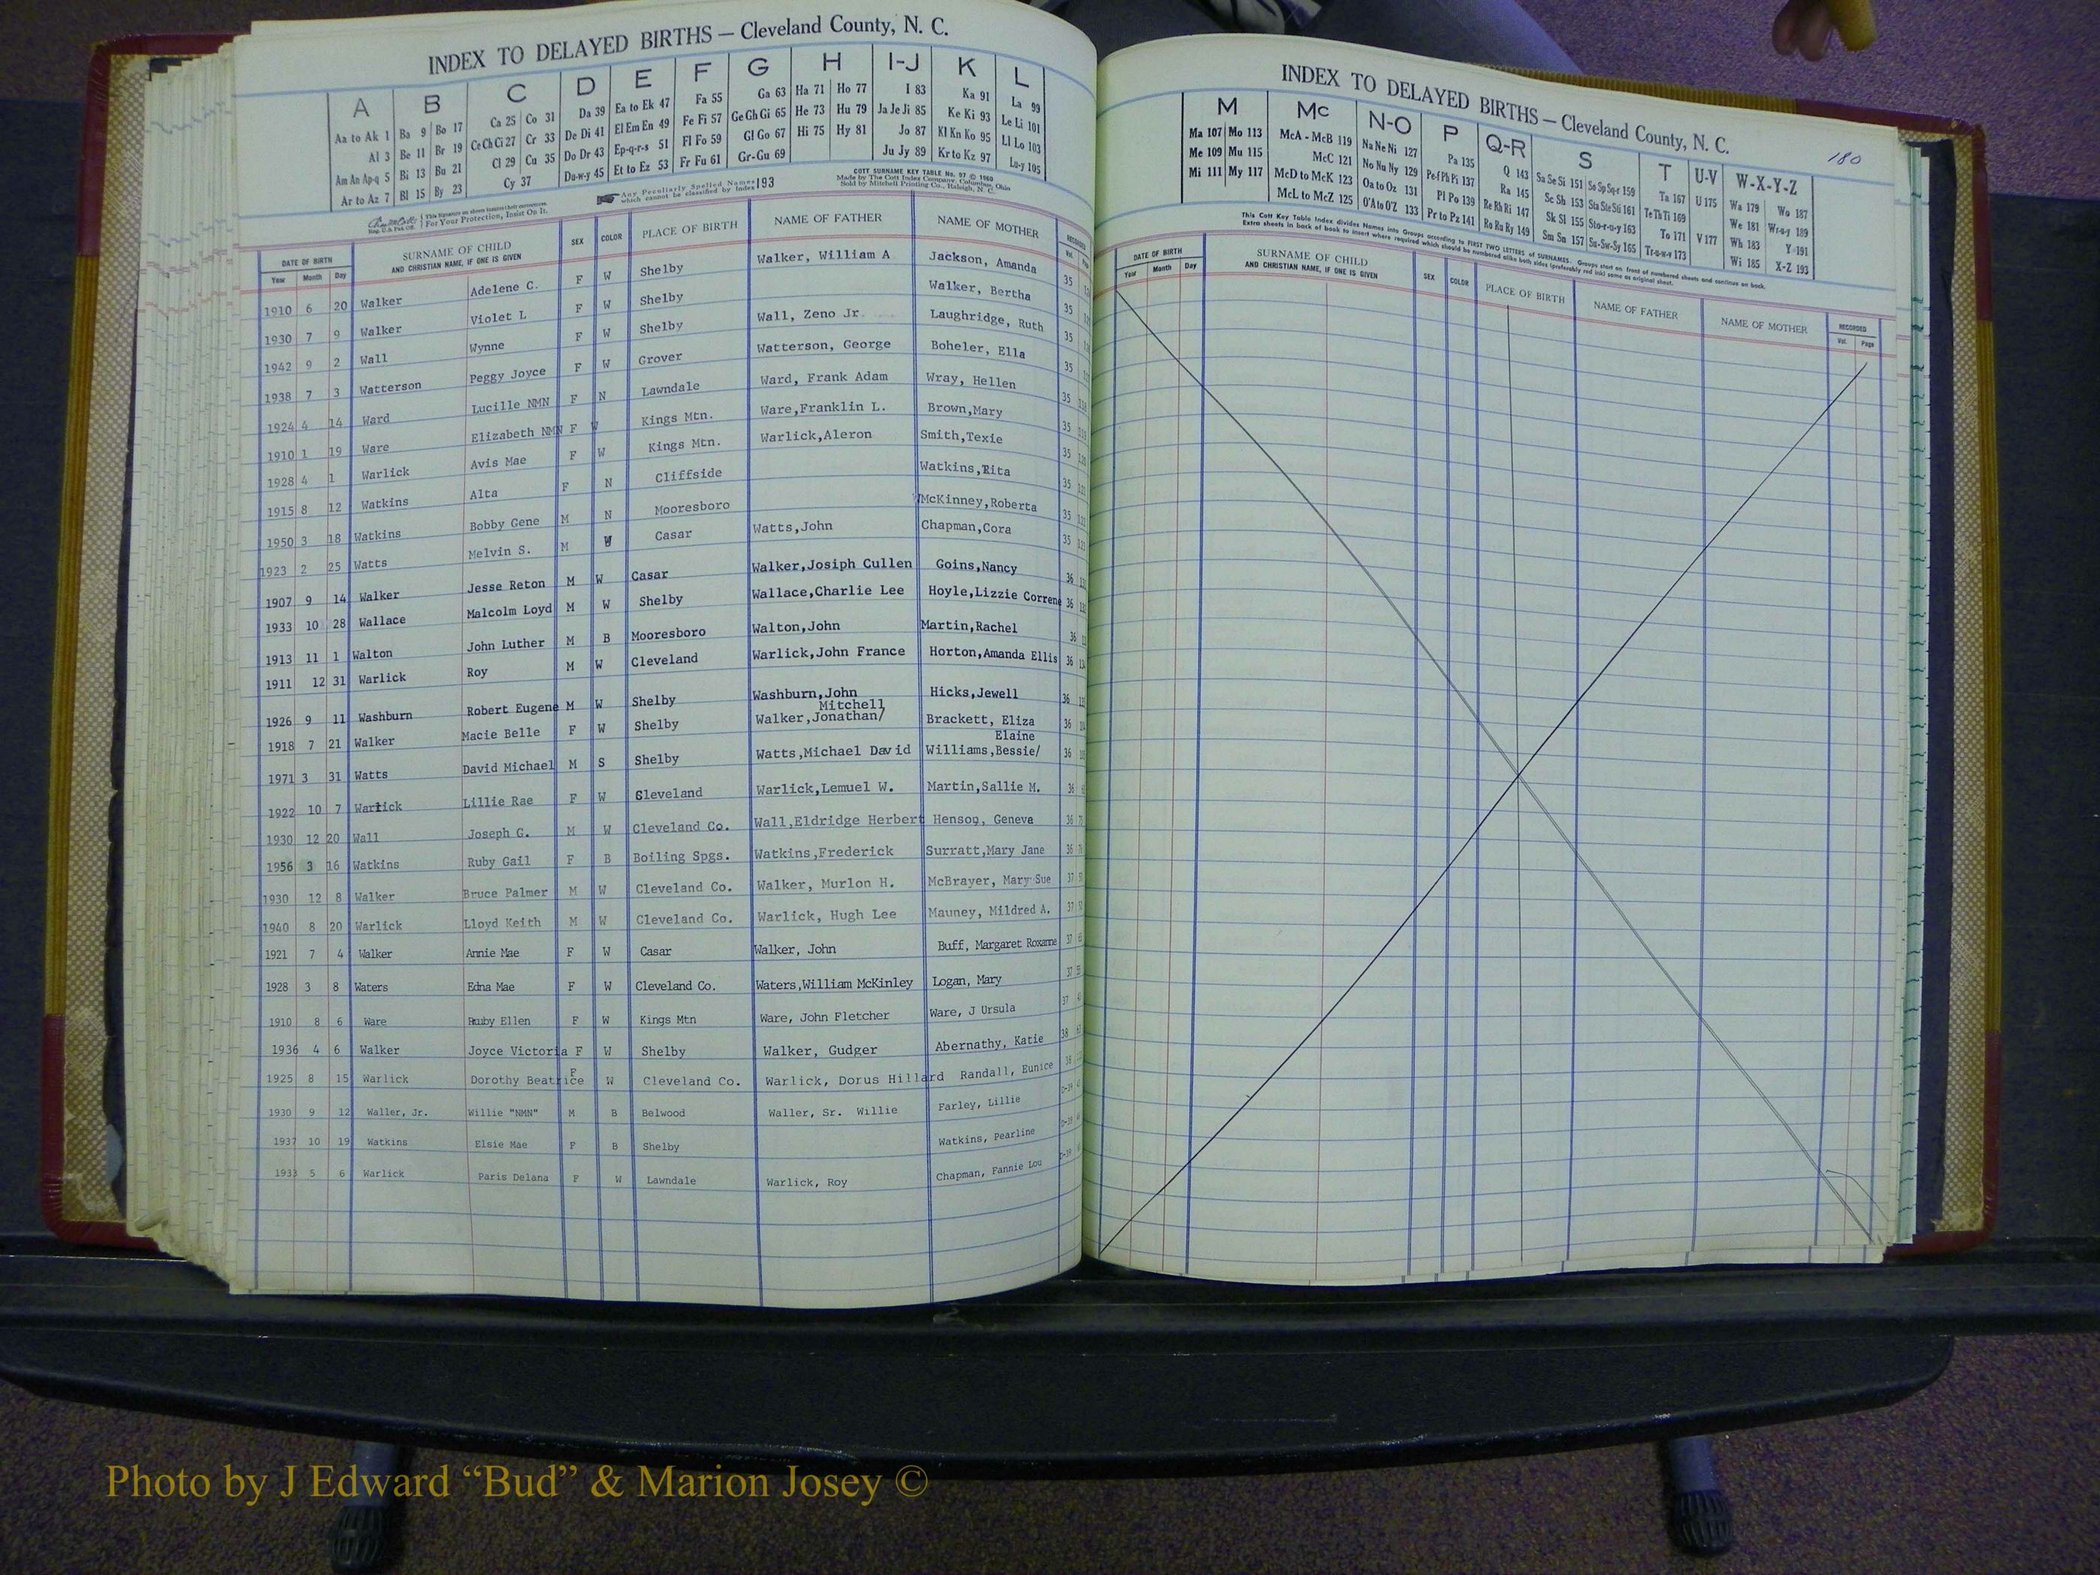 INDEX TO DELAYED BIRTHS — Cleveland County, N. C.
A B C D E F G H I-J K L
Aa to Ak 1 Ba 9 Bo 17 Ca 25 Co 31 Da 39 Ea to Ek 47 Fa 55 Ga 63 Ha 71 Ho 77 I 83 Ka 91 La 99
Al 3 Be 11 Br 19 Ce Ch Ci 27 Cr 33 De Di 41 El Em En 49 Fe Fi 57 Ge Gh Gi 65 He 73 Hu 79 Ja Je Ji 85 Ke Ki 93 Le Li 101
Am An Ap-q 5 Bi 13 Bu 21 Cl 29 Cu 35 Do Dr 43 Ep-q-r-s 51 Fl Fo 59 Gl Go 67 Hi 75 Hy 81 Jo 87 Kl Kn Ko 95 Ll Lo 103
Ar to Az 7 Bl 15 By 23 Cy 37 Du-w-y 45 Et to Ez 53 Fr Fu 61 Gr-Gu 69 Ju Jy 89 Kr to Kz 97 Lu-y 105
For Your Protection, Insist On It.
Any Peculiarly Spelled Names which cannot be classified by Index 193
COTT SURNAME KEY TABLE No. 97 © 1960
Made by The Cott Index Company, Columbus, Ohio
Sold by Mitchell Printing Co., Raleigh, N. C.
DATE OF BIRTH SURNAME OF CHILD AND CHRISTIAN NAME, IF ONE IS GIVEN SEX COLOR PLACE OF BIRTH NAME OF FATHER NAME OF MOTHER RECORDED
Year Month Day Vol.
1910 6 20 Walker Adelene C. F W Shelby Walker, William A Jackson, Amanda 35
1930 7 9 Walker Violet L F W Shelby Walker, Bertha 35
1942 9 2 Wall Wynne F W Shelby Wall, Zeno Jr Laughridge, Ruth 35
1938 7 3 Watterson Peggy Joyce F W Grover Watterson, George Boheler, Ella 35
1924 4 14 Ward Lucille NMN F N Lawndale Ward, Frank Adam Wray, Hellen 35
1910 1 19 Ware Elizabeth NMN F W Kings Mtn. Ware,Franklin L. Brown,Mary 35
1928 4 1 Warlick Avis Mae F W Kings Mtn. Warlick,Aleron Smith,Texie 35
1915 8 12 Watkins Alta F N Cliffside Watkins,Rita 35
1950 3 18 Watkins Bobby Gene M N Mooresboro McKinney,Roberta 35
1923 2 25 Watts Melvin S. M W Casar Watts,John Chapman,Cora 35
1907 9 14 Walker Jesse Reton M W Casar Walker,Josiph Cullen Goins,Nancy 36
1933 10 28 Wallace Malcolm Loyd M W Shelby Wallace,Charlie Lee Hoyle,Lizzie Correne 36
1913 11 1 Walton John Luther M B Mooresboro Walton,John Martin,Rachel 36
1911 12 31 Warlick Roy M W Cleveland Warlick,John France Horton,Amanda Ellis 36
1926 9 11 Washburn Robert Eugene M W Shelby Washburn,John Hicks,Jewell 36
Mitchell
1918 7 21 Walker Macie Belle F W Shelby Walker,Jonathan/ Brackett, Eliza 36
Elaine
1971 3 31 Watts David Michael M S Shelby Watts,Michael David Williams,Bessie/ 36
1922 10 7 Warlick Lillie Rae F W Cleveland Warlick,Lemuel W. Martin,Sallie M. 36
1930 12 20 Wall Joseph G. M W Cleveland Co. Wall,Eldridge Herbert Henson, Geneva 36
1956 3 16 Watkins Ruby Gail F B Boiling Spgs. Watkins,Frederick Surratt,Mary Jane 36
1930 12 8 Walker Bruce Palmer M W Cleveland Co. Walker, Murlon H. McBrayer, Mary Sue 37
1940 8 20 Warlick Lloyd Keith M W Cleveland Co. Warlick, Hugh Lee Mauney, Mildred A. 37
1921 7 4 Walker Annie Mae F W Casar Walker, John Buff, Margaret Roxanne 37
1928 3 8 Waters Edna Mae F W Cleveland Co. Waters,William McKinley Logan, Mary 37
1910 8 6 Ware Ruby Ellen F W Kings Mtn Ware, John Fletcher Ware, J Ursula 37
1936 4 6 Walker Joyce Victoria F W Shelby Walker, Gudger Abernathy, Katie 38
1925 8 15 Warlick Dorothy Beatrice F W Cleveland Co. Warlick, Dorus Hillard Randall, Eunice 38
1930 9 12 Waller, Jr. Willie "NMN" M B Belwood Waller, Sr. Willie Farley, Lillie D-39
1937 10 19 Watkins Elsie Mae F B Shelby Watkins, Pearline D-39
1933 5 6 Warlick Paris Delana F W Lawndale Warlick, Roy Chapman, Fannie Lou D-39
INDEX TO DELAYED BIRTHS — Cleveland County, N. C.
180
M Mc N-O P Q-R S T U-V W-X-Y-Z
Ma 107 Mo 113 McA - McB 119 Na Ne Ni 127 Pa 135 Q 143 Sa Se Si 151 So Sp Sq-r 159 Ta 167 U 175 Wa 179 Wo 187
Me 109 Mu 115 McC 121 No Nu Ny 129 Pe-f Ph Pi 137 Ra 145 Sc Sh 153 Sta Ste Sti 161 Te Th Ti 169 We 181 Wr-u-y 189
Mi 111 My 117 McD to McK 123 Oa to Oz 131 Pl Po 139 Re Rh Ri 147 Sk Sl 155 Sto-r-u-y 163 To 171 V 177 Wh 183 Y 191
McL to McZ 125 O'A to O'Z 133 Pr to Pz 141 Ro Ru Ry 149 Sm Sn 157 Su-Sw-Sy 165 Tr-u-w-y 173 Wi 185 X-Z 193
This Cott Key Table Index divides Names into Groups according to FIRST TWO LETTERS of SURNAMES. Groups start on front of numbered sheets and continue on back.
Extra sheets in back of book to insert where required which should be numbered alike both sides (preferably red ink) same as original sheet.
DATE OF BIRTH SURNAME OF CHILD AND CHRISTIAN NAME, IF ONE IS GIVEN SEX COLOR PLACE OF BIRTH NAME OF FATHER NAME OF MOTHER RECORDED
Year Month Day Vol. Page
Photo by J Edward “Bud” & Marion Josey ©